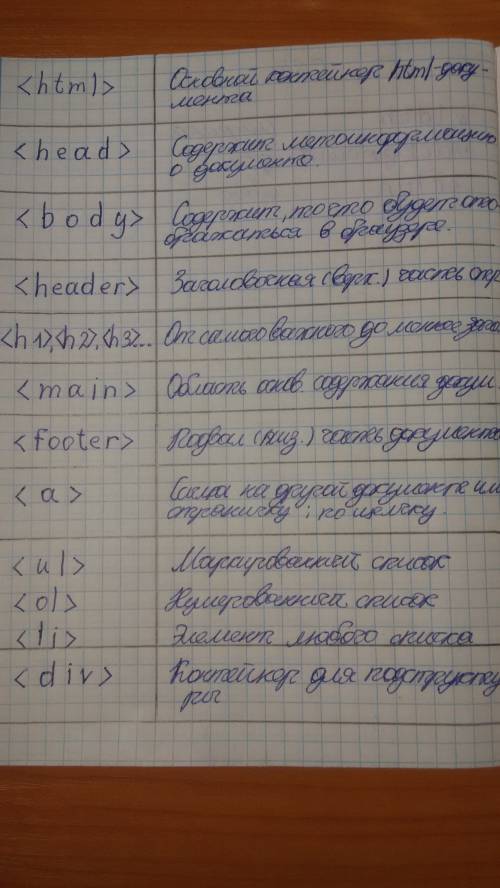 <html> Основной контейнер html-доку-
мента
<head> Содержит метоинформацию
о документе.
<body> Содержит, то что будет ото
бражаться в браузере.
<header> Заголовочная (верх.) часть стр
<h1>,<h2>,<h3>.. От самого важного до менее заго
<main> Область основ. содержания докум
<footer> Подвал (низ.) часть документа
<a> Ссылка на другой документ ил
страничку; по щелчку.
<ul> Маркированный список
<ol> Нумерованный список
<li> Элемент любого списка
<div> Контейнер для подструкту
ры